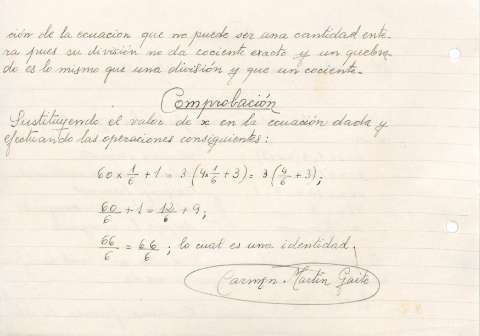 ción de la ecuacion que no puede ser una cantidad ente-
ra pues su división no da cociente exacto y un quebra-
do es lo mismo que una división y que un cociente.
Comprobación
Sustituyendo el valor de x en la ecuación dada y
efectuando las operaciones consiguientes:
60 x 1/6 + 1 = 3 (4x 1/6 + 3) = 3 (4/6 + 3);
60/6 + 1 = 12/6 + 9;
66/6 = 66/6 ; lo cual es una identidad.
Carmen Martín Gaite